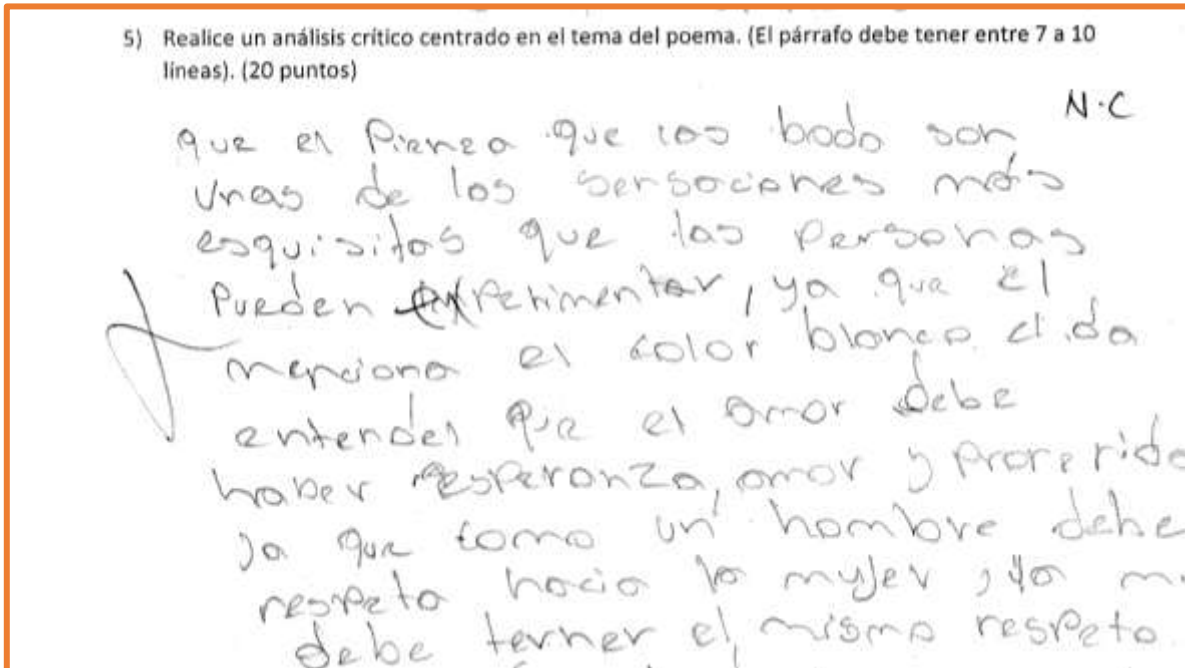 5) Realice un análisis crítico centrado en el tema del poema. (El párrafo debe tener entre 7 a 10
líneas). (20 puntos)
N.C
que el Pienza que las bodo son
unas de los sensaciones más
esquisitos que las Personas
Pueden experimentar, ya que el
menciona el color blanco el da
entender que el amor debe
haber esperanza, amor y
ya que como un hombre debe
respeto hacia la mujer, la
debe terner el mismo respeto